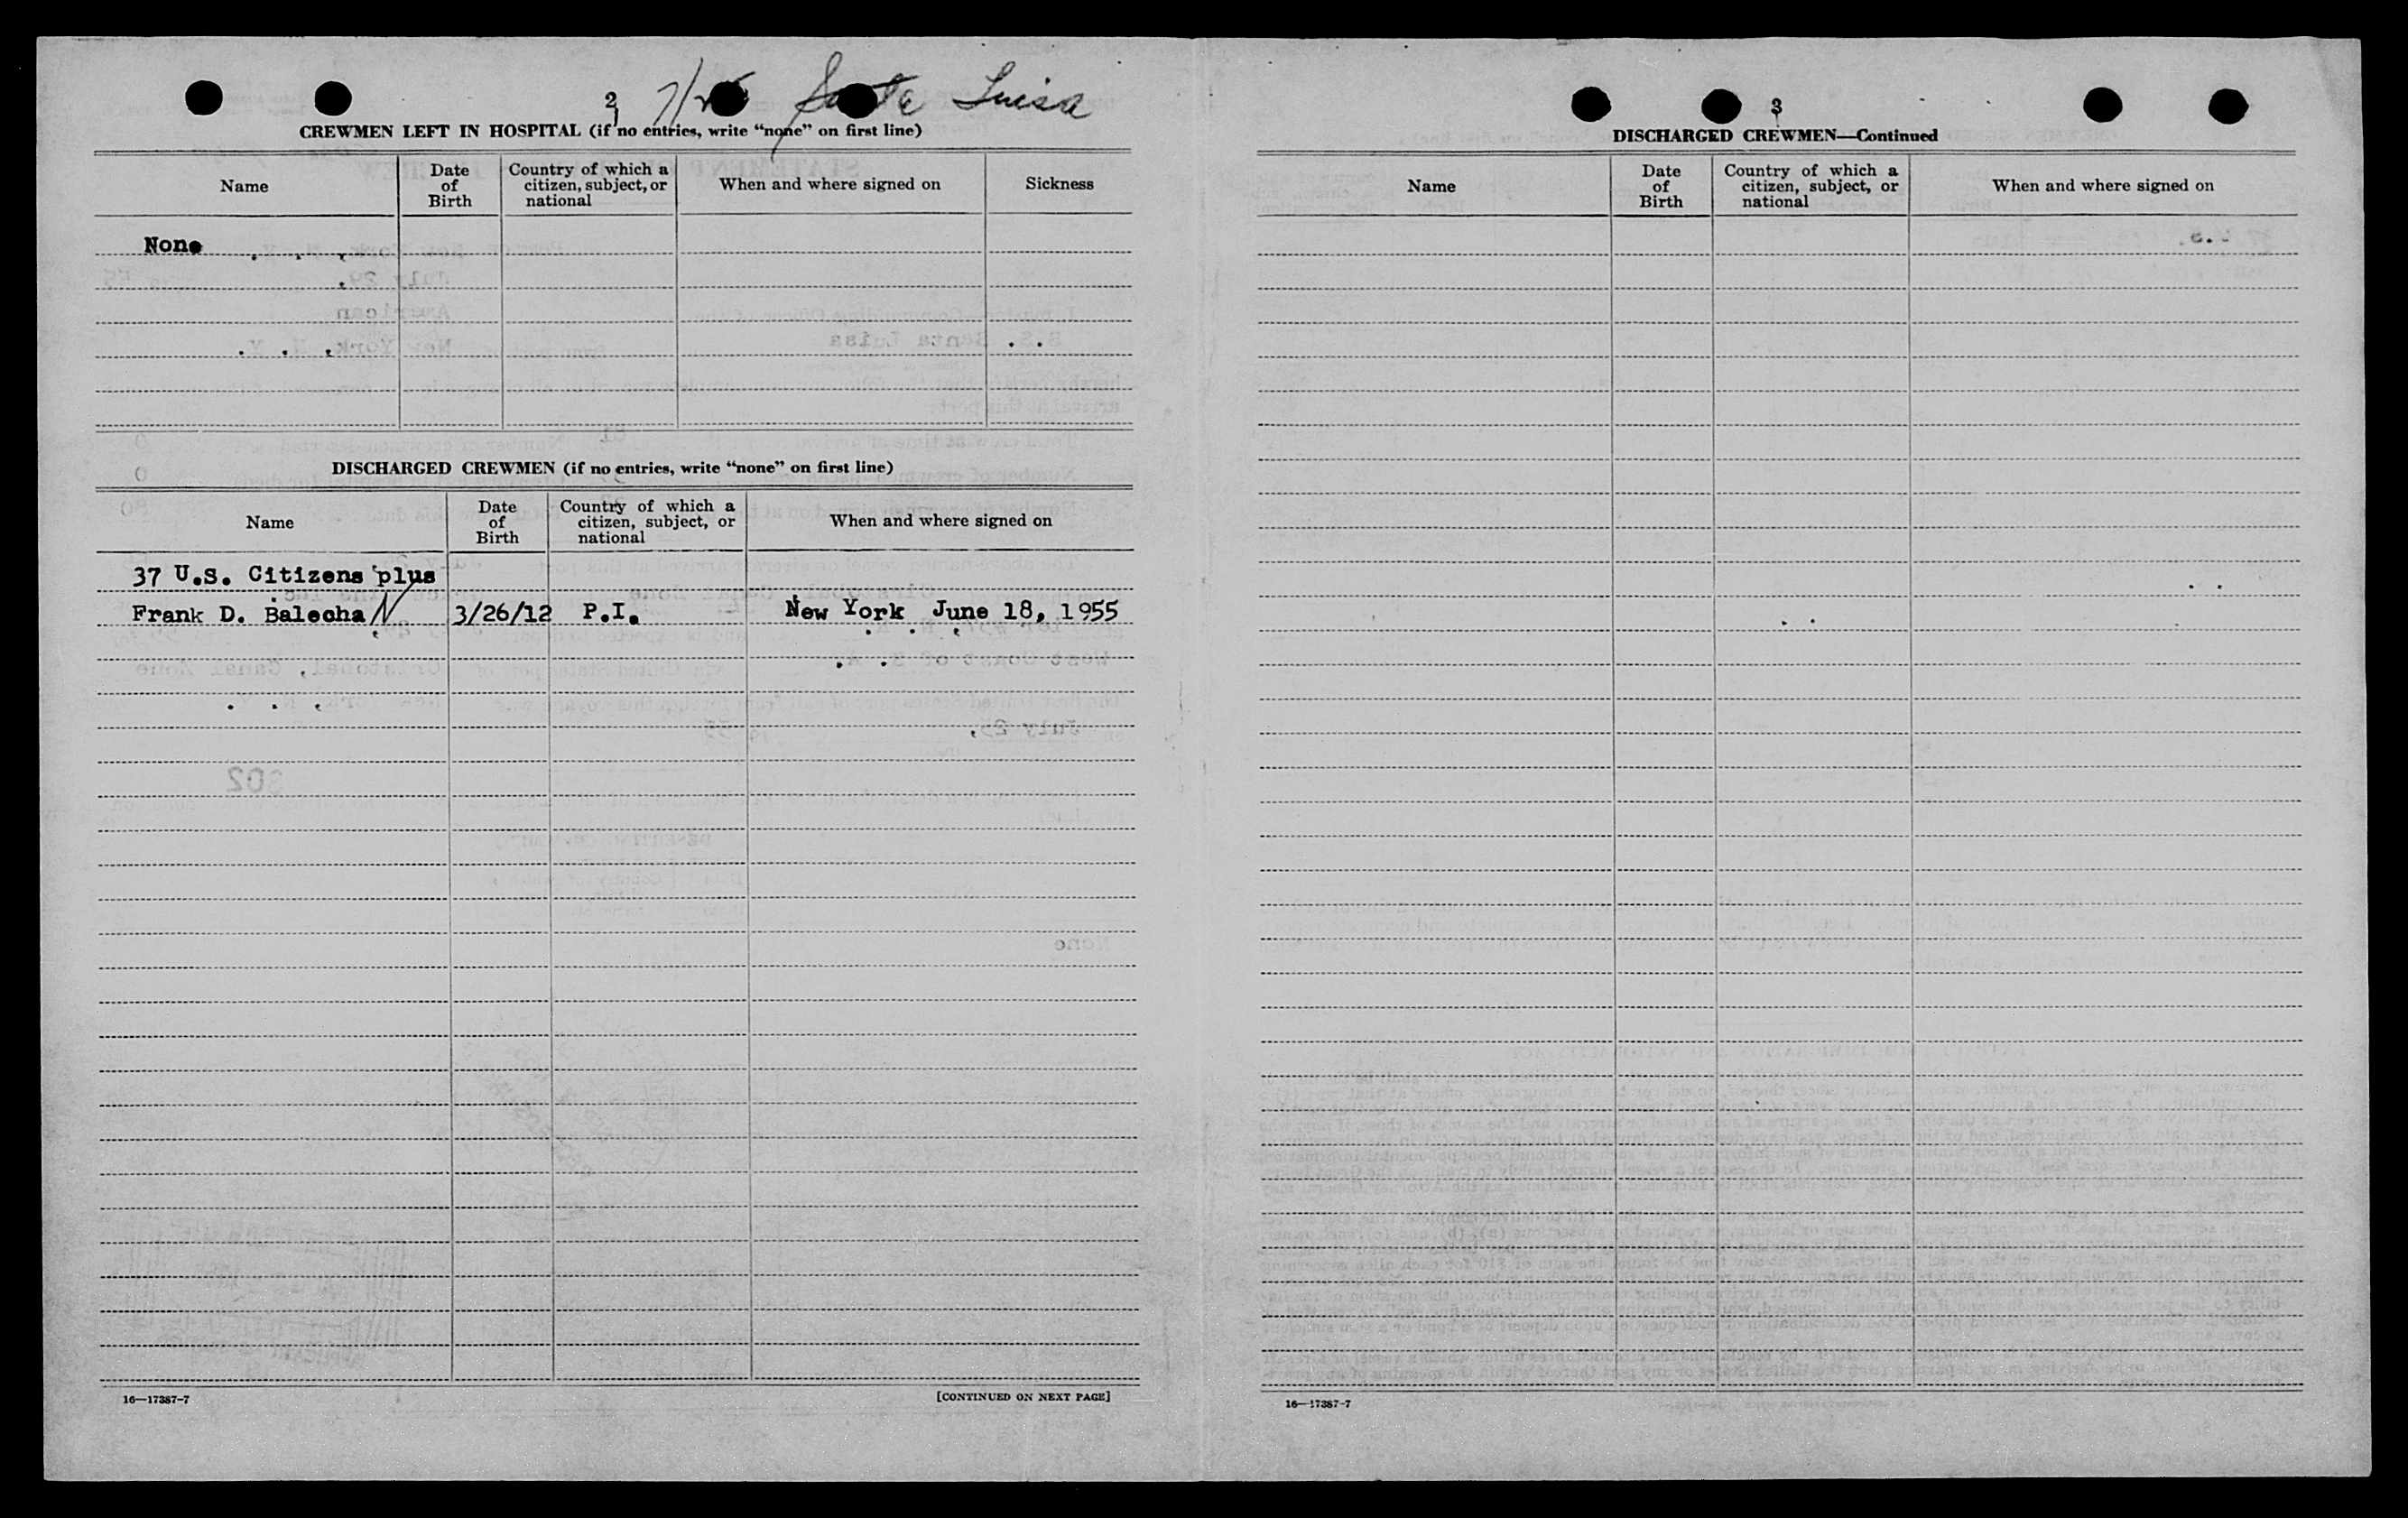 2 Santa Luisa
CREWMEN LEFT IN HOSPITAL (if no entries, write “none” on first line)
Name
Date of Birth
Country of which a citizen, subject, or national
When and where signed on
Sickness
None
DISCHARGED CREWMEN (if no entries, write “none” on first line)
Name
Date of Birth
Country of which a citizen, subject, or national
When and where signed on
37 U.S. Citizens plus
Frank D. Balecha N 3/26/12 P.I. New York June 18, 1955
16—17387-7 [CONTINUED ON NEXT PAGE]
3
DISCHARGED CREWMEN—Continued
Name
Date of Birth
Country of which a citizen, subject, or national
When and where signed on
16—17387-7